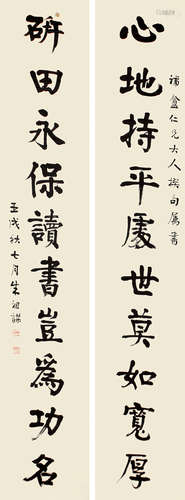 補盦仁兄大人撰句属書
心地持平處世莫如寬厚
硏田永保讀書豈為功名
壬戌秋七月朱祖謀